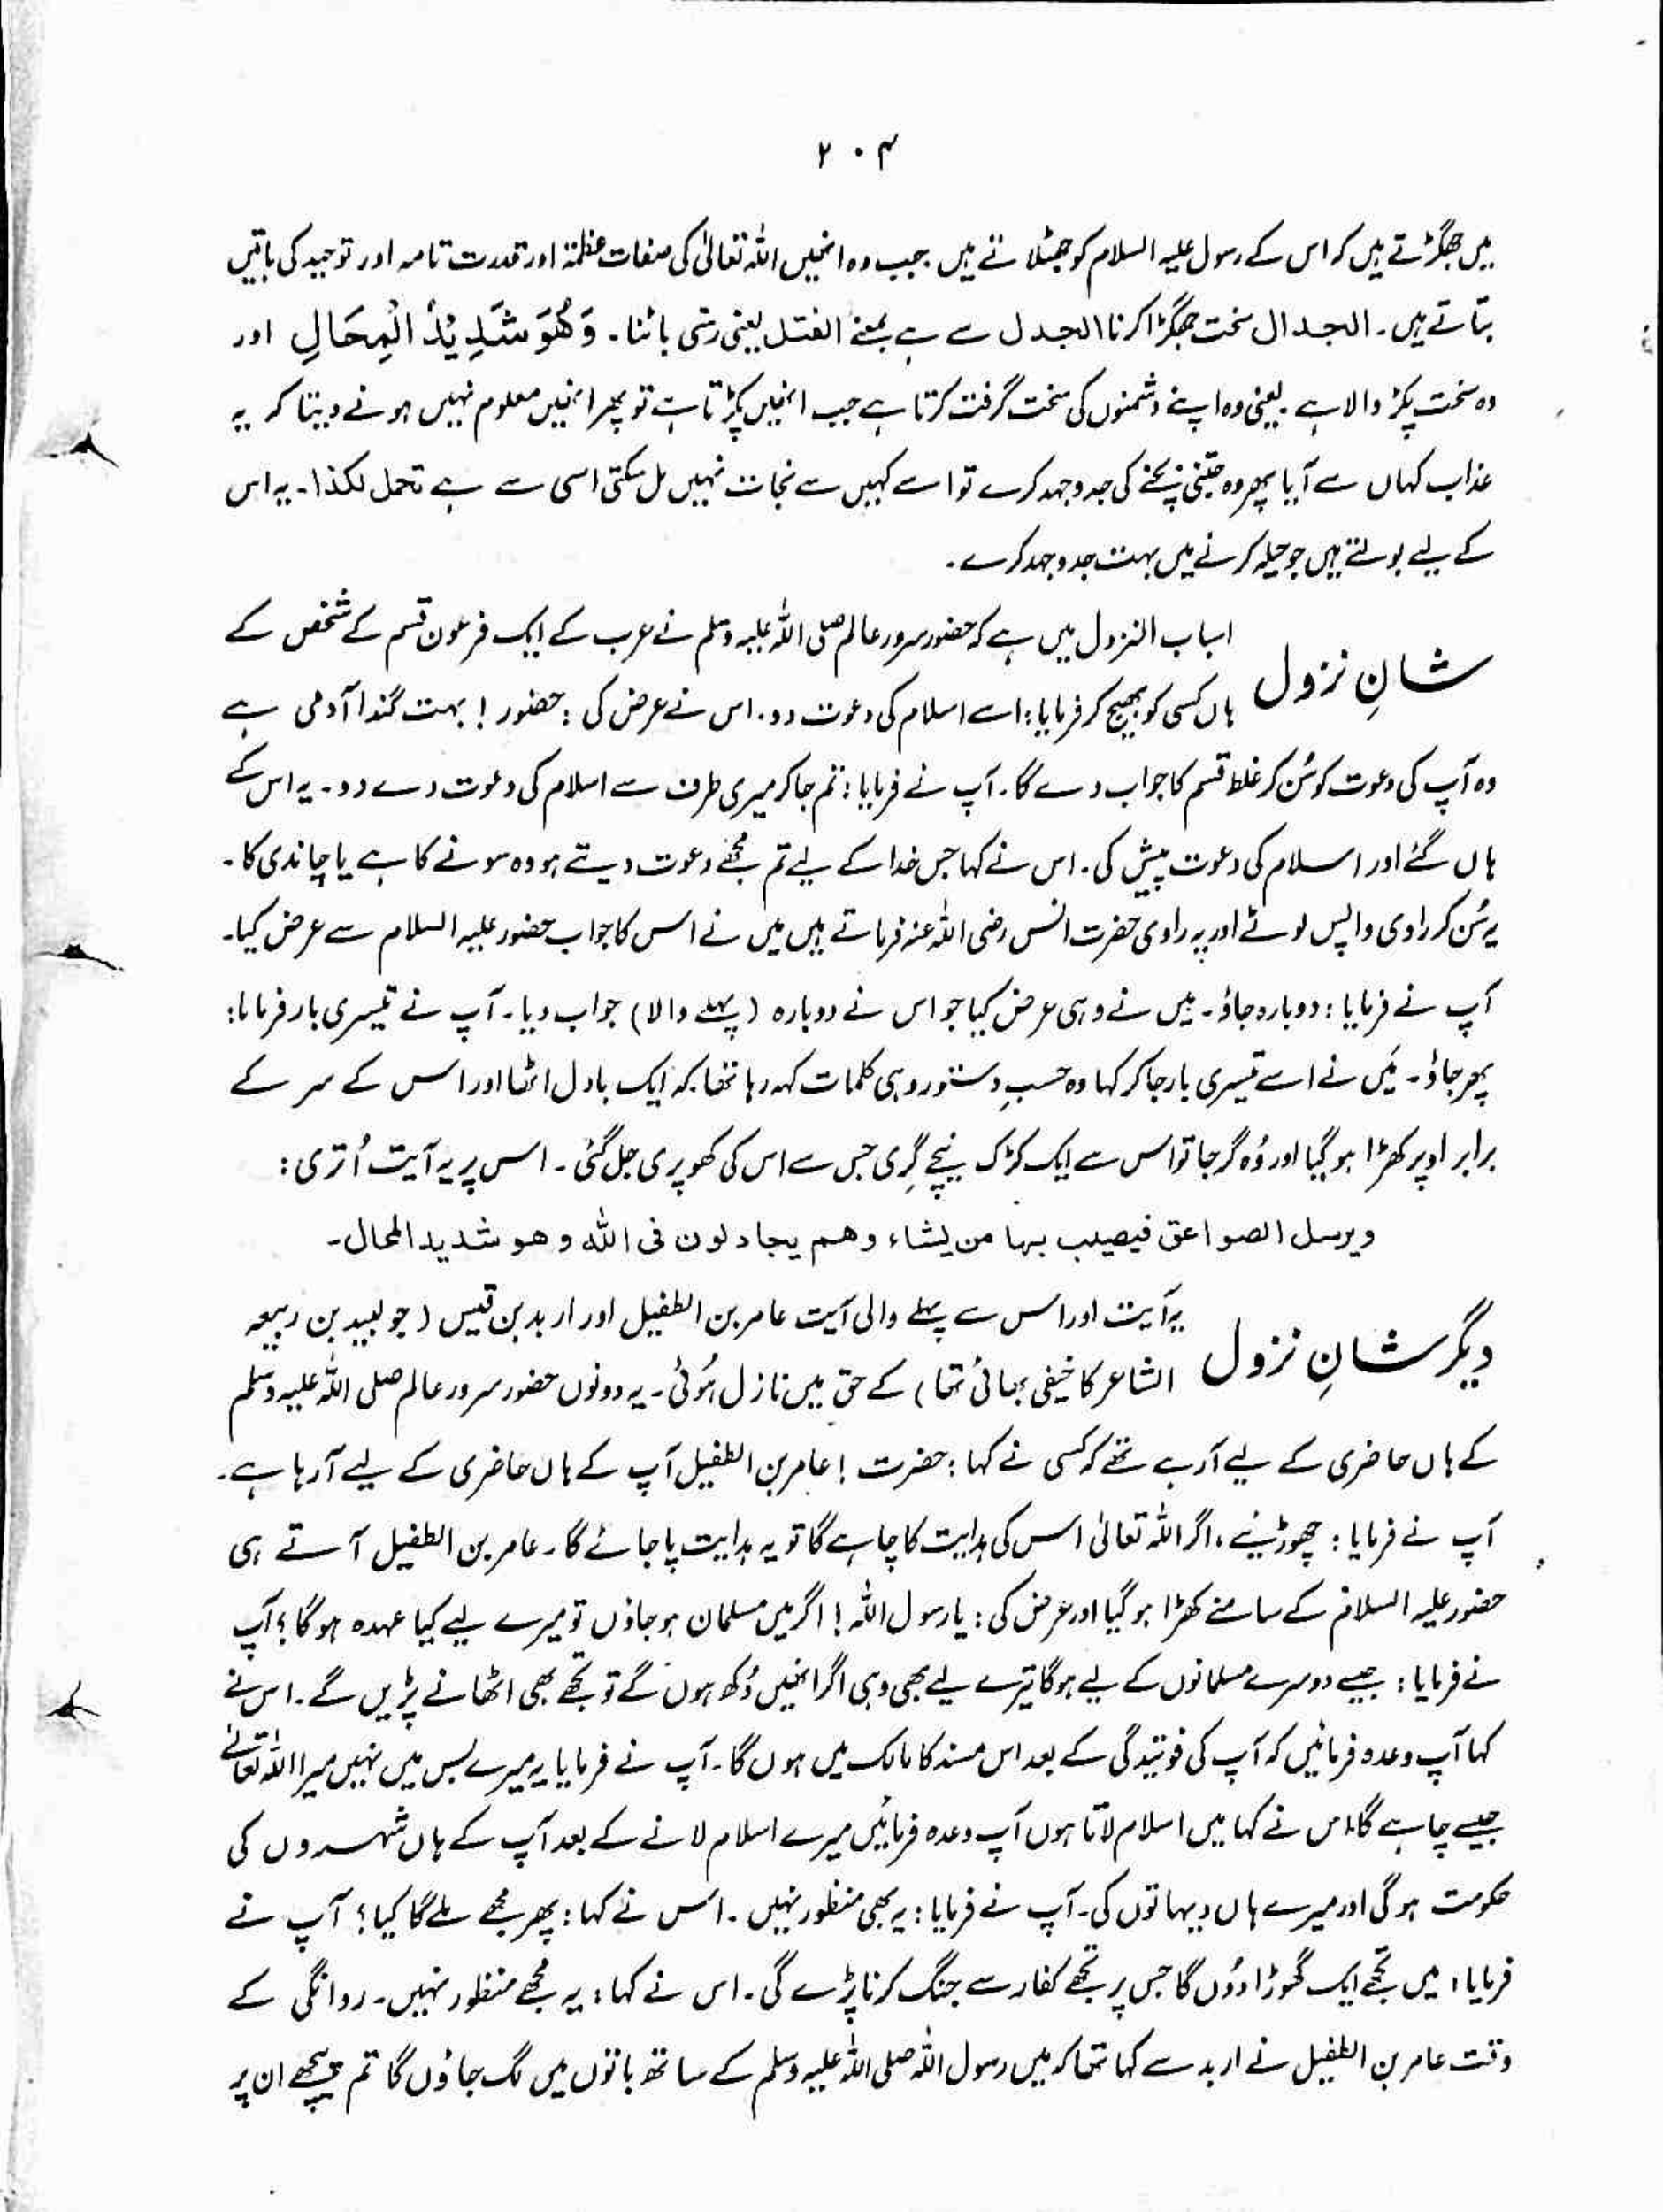 ۲۰۴
میں جھگڑتے ہیں کہ اس کے رسول علیہ السلام کو جھٹلاتے ہیں جب وہ انھیں اللہ تعالیٰ کی صفات عظمۃ اور قدرت تامہ اور توحید کی باتیں
بتاتے ہیں۔ الجدال سخت جھگڑا کرنا الجدل سے ہے بمعنے الفتل یعنی رسّی باٹنا۔ وَهُوَ شَدِيْدُ الْمِحَالِ اور
وہ سخت پکڑ والا ہے۔ یعنی وہ اپنے دشمنوں کی سخت گرفت کرتا ہے جب انھیں پکڑتا ہے تو پھر انھیں معلوم نہیں ہونے دیتا کہ یہ
عذاب کہاں سے آیا پھر وہ جتنی بچنے کی جدوجہد کرے تو اسے کہیں سے نجات نہیں مل سکتی اسی سے ہے تحمل لکذا۔ یہ اس
کے لیے بولتے ہیں جو حیلہ کرنے میں بہت جدوجہد کرے۔
شانِ نزول
اسباب النزول میں ہے کہ حضور سرور عالم صلی اللہ علیہ وسلم نے عرب کے ایک فرعون قسم کے شخص کے
ہاں کسی کو بھیج کر فرمایا: اسے اسلام کی دعوت دو۔ اس نے عرض کی: حضور! بہت گندا آدمی ہے
وہ آپ کی دعوت کو سُن کر غلط قسم کا جواب دے گا۔ آپ نے فرمایا: تم جا کر میری طرف سے اسلام کی دعوت دے دو۔ یہ اس کے
ہاں گئے اور اسلام کی دعوت پیش کی۔ اس نے کہا جس خدا کے لیے تم مجھے دعوت دیتے ہو وہ سونے کا ہے یا چاندی کا۔
یہ سُن کر راوی واپس لوٹے اور یہ راوی حضرت انس رضی اللہ عنہ فرماتے ہیں میں نے اس کا جواب حضور علیہ السلام سے عرض کیا۔
آپ نے فرمایا: دوبارہ جاؤ۔ میں نے وہی عرض کیا جو اس نے دوبارہ (پہلے والا) جواب دیا۔ آپ نے تیسری بار فرمایا:
پھر جاؤ۔ میں نے اسے تیسری بار جا کر کہا وہ حسبِ دستور وہی کلمات کہہ رہا تھا کہ ایک بادل اٹھا اور اس کے سر کے
برابر اوپر کھڑا ہو گیا اور وُہ گرجا تو اس سے ایک کڑک نیچے گِری جس سے اس کی کھوپری جل گئی۔ اس پر یہ آیت اُتری:
ویرسل الصواعق فیصیب بها من یشاء وهم یجادلون فی اللہ وهو شدید المحال۔
دیگر شانِ نزول
یہ آیت اور اس سے پہلے والی آیت عامر بن الطفیل اور اربد بن قیس (جو لبید بن ربیعہ
الشاعر کا خیفی بھائی تھا) کے حق میں نازل ہُوئی۔ یہ دونوں حضور سرور عالم صلی اللہ علیہ وسلم
کے ہاں حاضری کے لیے آرہے تھے کہ کسی نے کہا: حضرت! عامر بن الطفیل آپ کے ہاں حاضری کے لیے آ رہا ہے۔
آپ نے فرمایا: چھوڑیئے، اگر اللہ تعالیٰ اس کی ہدایت کا چاہے گا تو یہ ہدایت پا جائے گا۔ عامر بن الطفیل آتے ہی
حضور علیہ السلام کے سامنے کھڑا ہو گیا اور عرض کی: یا رسول اللہ! اگر میں مسلمان ہو جاؤں تو میرے لیے کیا عہدہ ہوگا؟ آپ
نے فرمایا: جیسے دوسرے مسلمانوں کے لیے ہوگا تیرے لیے بھی وہی اگر انھیں دُکھ ہوں گے تو تجھے بھی اٹھانے پڑیں گے۔ اس نے
کہا آپ وعدہ فرمائیں کہ آپ کی فوتیدگی کے بعد اس مسند کا مالک میں ہوں گا۔ آپ نے فرمایا یہ میرے بس میں نہیں میرا اللہ تعالےٰ
جیسے چاہے گا۔ اس نے کہا میں اسلام لاتا ہوں آپ وعدہ فرمائیں میرے اسلام لانے کے بعد آپ کے ہاں شہروں کی
حکومت ہوگی اور میرے ہاں دیہاتوں کی۔ آپ نے فرمایا: یہ بھی منظور نہیں۔ اس نے کہا: پھر مجھے ملے گا کیا؟ آپ نے
فرمایا: میں تجھے ایک گھوڑا دُوں گا جس پر تجھے کفار سے جنگ کرنا پڑے گی۔ اس نے کہا: یہ مجھے منظور نہیں۔ روانگی کے
وقت عامر بن الطفیل نے اربد سے کہا تھا کہ میں رسول اللہ صلی اللہ علیہ وسلم کے ساتھ باتوں میں لگ جاؤں گا تم پیچھے ان پر